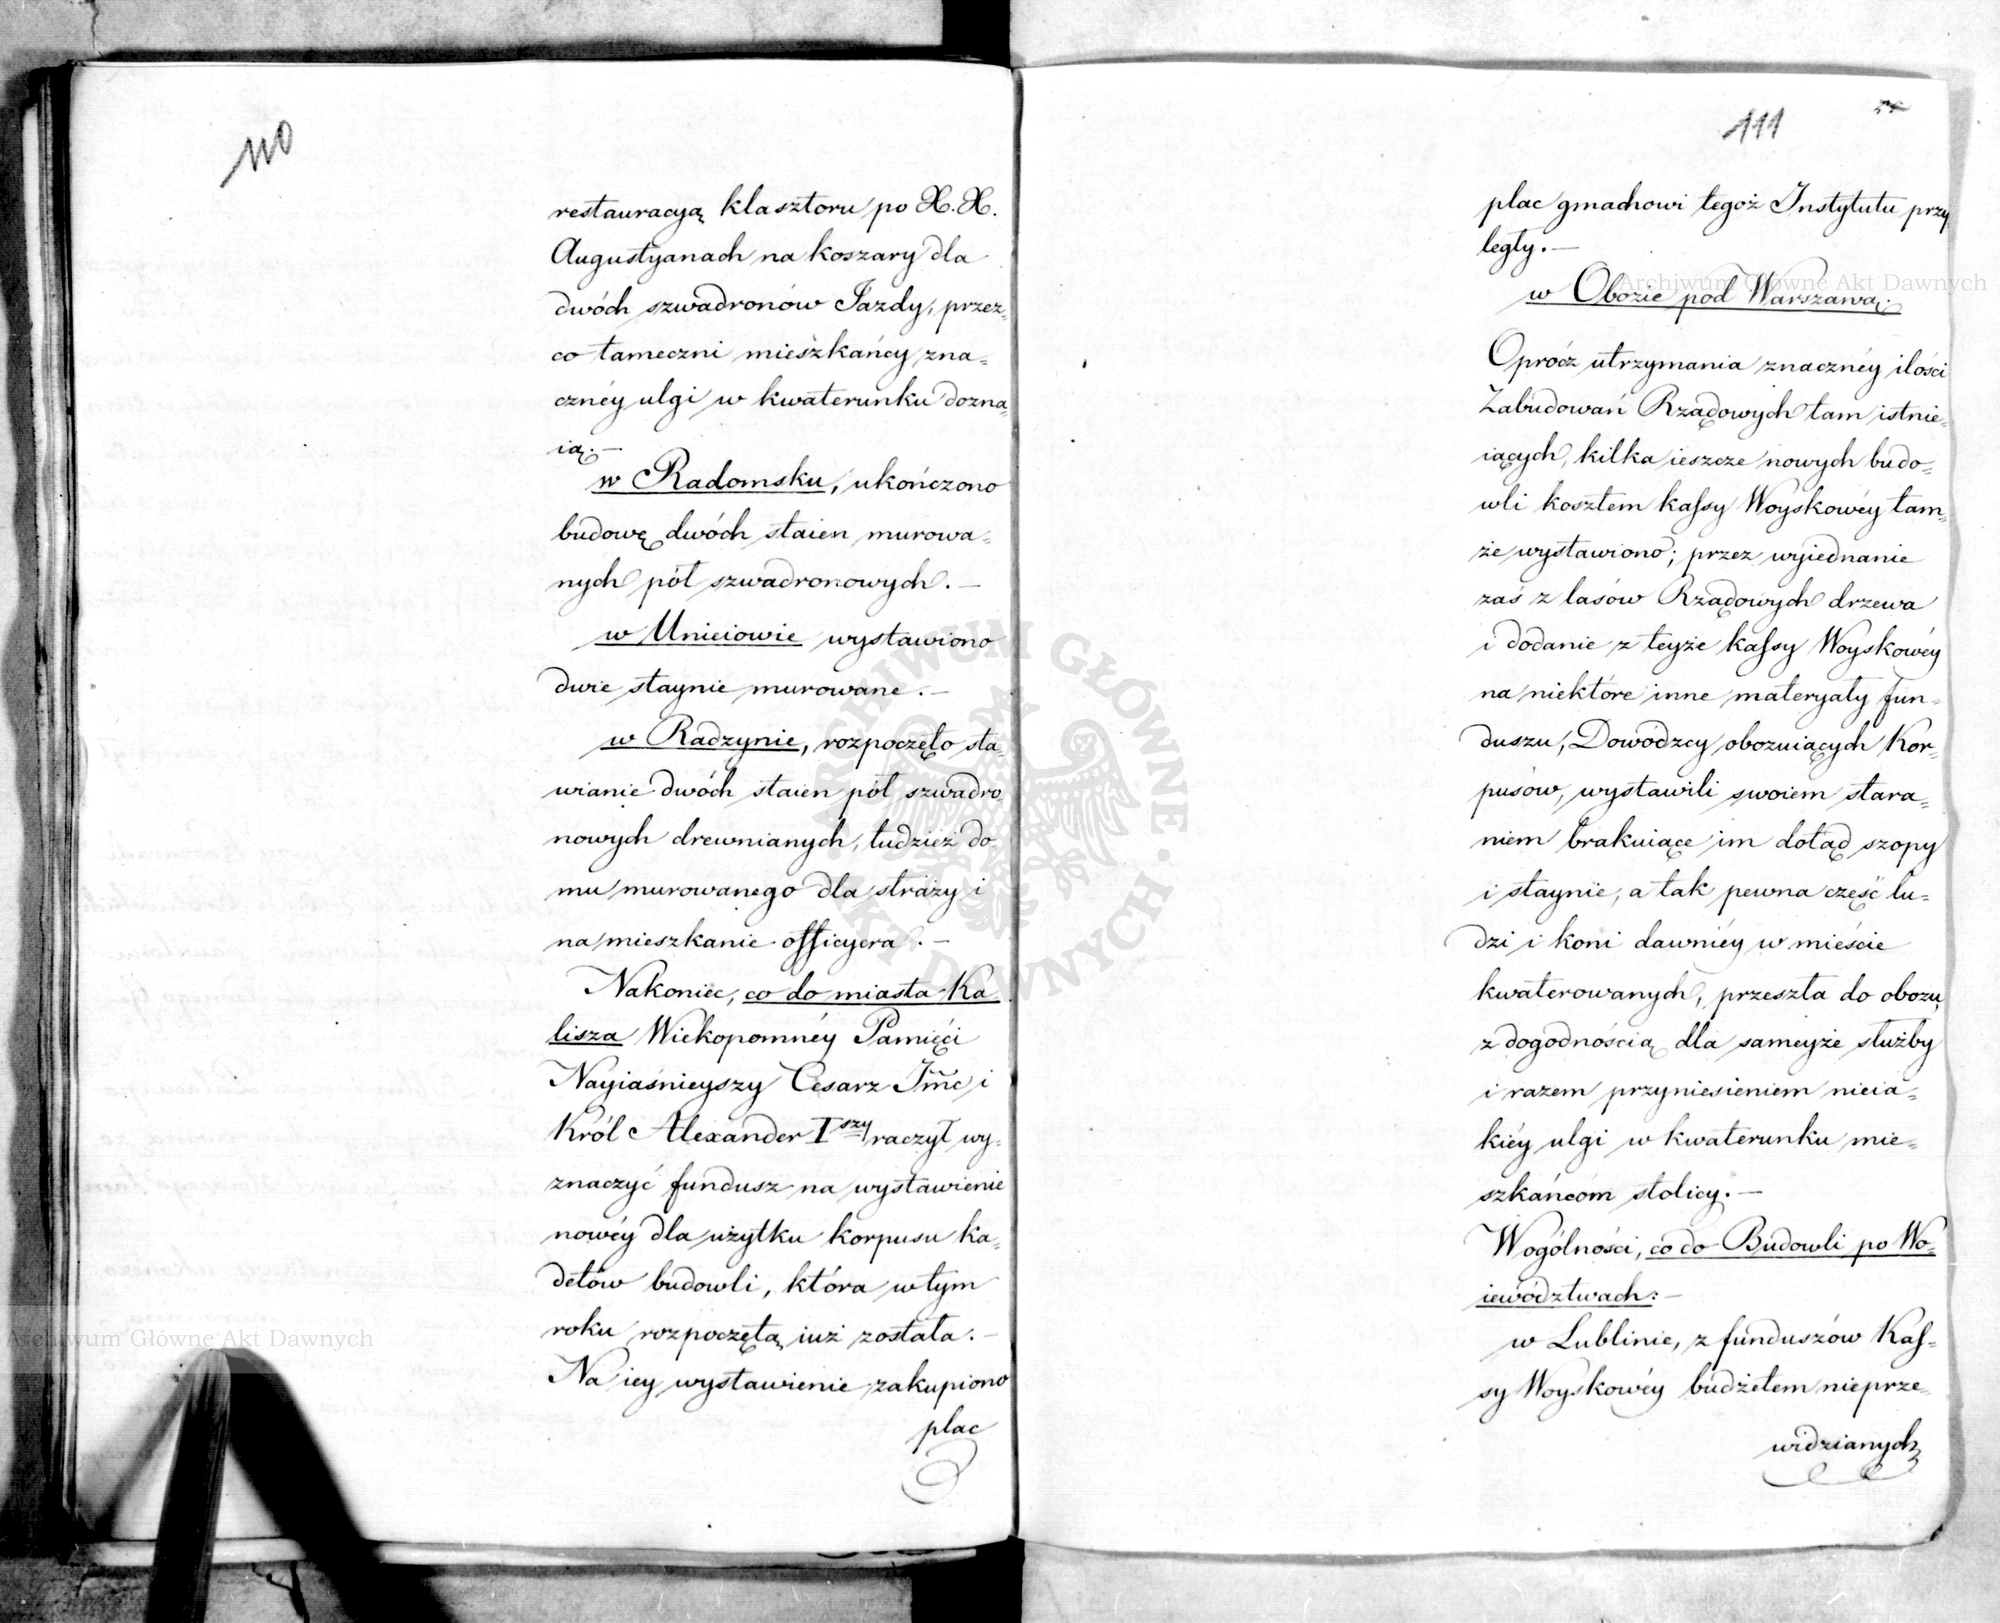 110
restauracyą klasztoru po X.X.
Augustyanach na koszary dla
dwóch szwadronów Jazdy, przez=
co tameczni mieszkańcy zna=
cznéy ulgi w kwaterunku dozna=
ią.—
w Radomsku, ukończono
budowę dwóch staien murowa=
nych pół szwadronowych.—
w Unieiowie wystawiono
dwie staynie murowane.—
w Radzynie, rozpoczęto sta=
wianie dwóch staien pół szwadro=
nowych drewnianych, tudzież do=
mu murowanego dla straży i
na mieszkanie officyera.—
Nakoniec, co do miasta Ka
lisza Wiekopomnéy Pamięci
Nayiaśnieyszy Cesarz Jmć i
Król Alexander Iszy raczył wy=
znaczyć fundusz na wystawienie
nowéy dla użytku korpusu ka=
detów budowli, która w tym
roku rozpoczętą iuż została.—
Na iey wystawienie zakupiono
plac
111
plac gmachowi tegoż Instytutu przy
legły.—
w Obozie pod Warszawą.
Oprócz utrzymania znacznéy ilości
Zabudowań Rządowych tam istnie=
iących, kilka ieszcze nowych budo=
wli kosztem kassy Woyskowéy tam=
że wystawiono; przez wyiednanie
zaś z lasów Rządowych drzewa
i dodanie z teyże kassy Woyskowéy
na niektóre inne materyały fun=
duszu, Dowódzcy obozuiących Kor=
pusów, wystawili swoiem stara=
niem brakuiące im dotąd szopy
i staynie, a tak pewna część lu=
dzi i koni dawniéy w mieście
kwaterowanych, przeszła do obozu,
z dogodnością dla sameyże służby
i razem przyniesieniem nieia=
kiéy ulgi w kwaterunku mie=
szkańcom stolicy.—
Wogólności, co do Budowli po Wo=
iewództwach:—
w Lublinie, z funduszów Kas=
sy Woyskowéy budżetem nieprze=
widzianych
Archiwum Główne Akt Dawnych
Archiwum Główne Akt Dawnych
ARCHIWUM GŁÓWNE AKT DAWNYCH